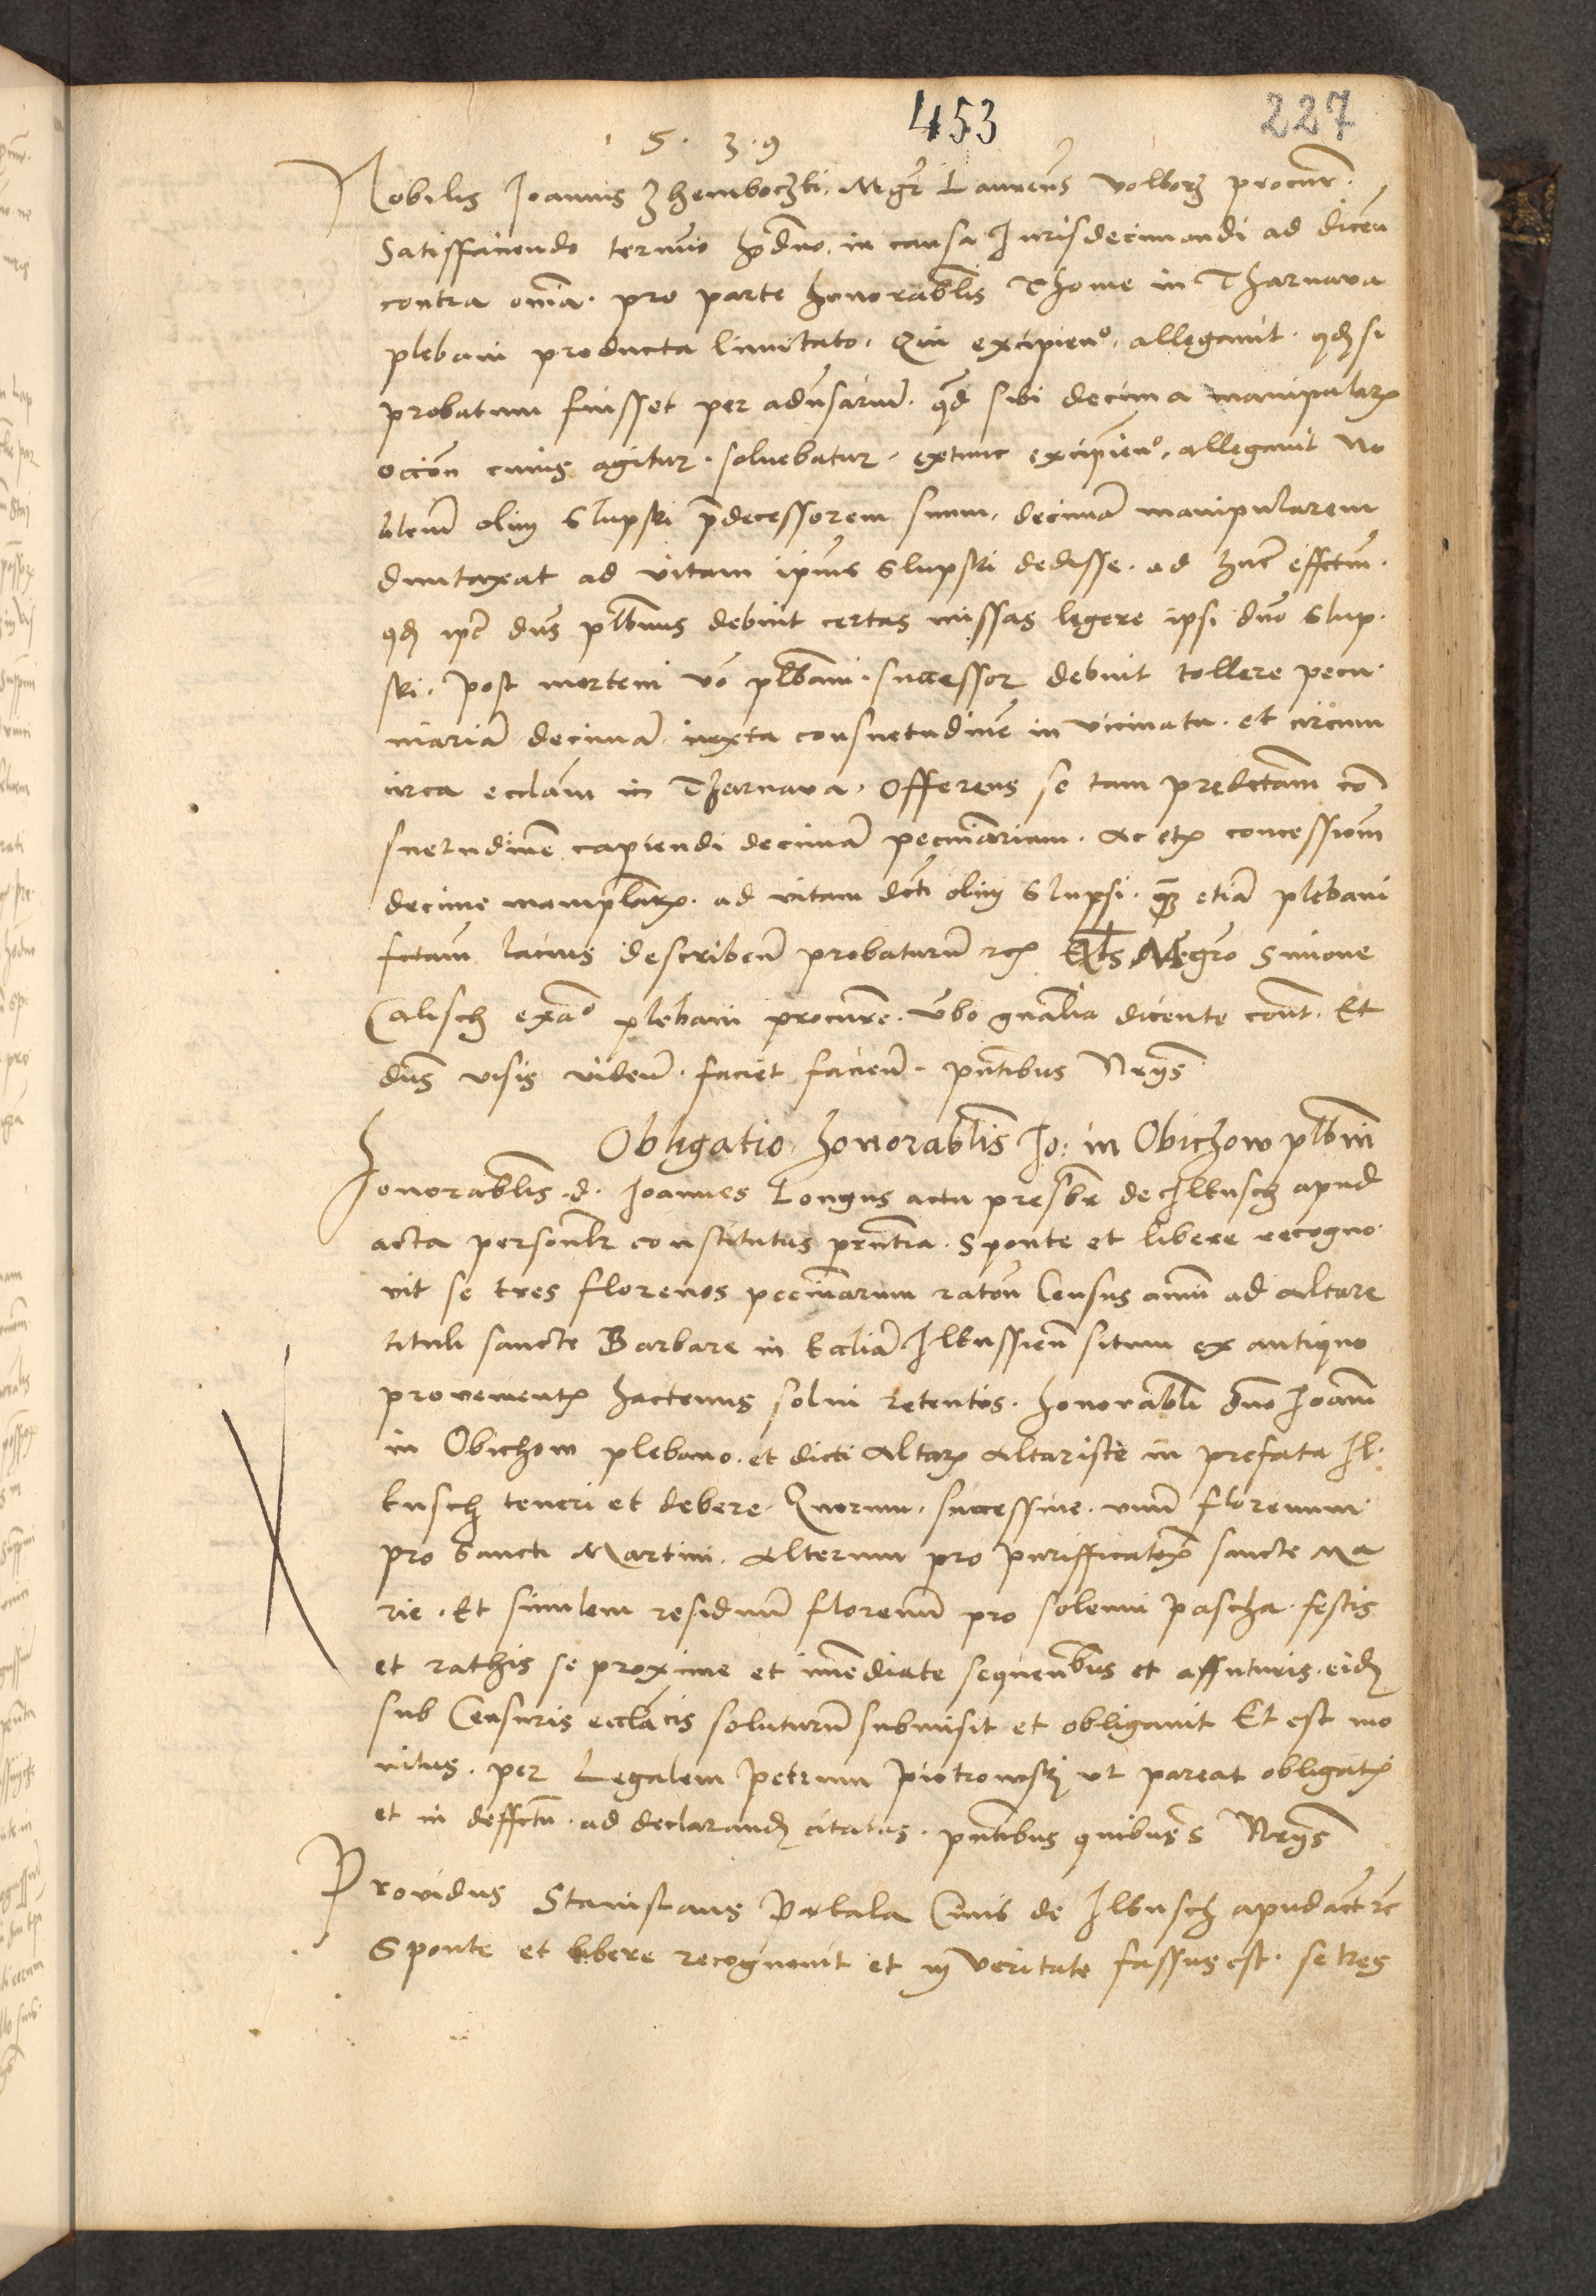 453
227
1 5 . 3 . 9
Nobilis Joannis Zhemboczki. Mgr Laurens Volborz procur.
Satisfaciendo termino hodno. in causa Jurisdecimandi ad dicen
contra omia. pro parte honorablis Thome in Tharnava
plebani producta limitato. Qui excipieno. allegavit. qd si
probatum fuisset per adversarium. qd sibi decima manipularis
occon cuius agitur. soluebatur. extunc excipieno, allegavit No
bilem olim Slupski predecessorem suum. decima manipularem
dumtaxat ad vitam ipius Slupski dedisse. ad hunc effctum.
qd ipse dns plbnus debuit certas missas legere ipsi dno Slup.
ski. post mortem vo plbani. successor debuit tollere pecu
niaria decima iuxta consuetudine in vicinatu. et circum
circa ecclam in Tharnava. Offerens se tam predictam co
suetudine capiendi decima pecuniariam. Ac etx concessionem
decime maniplaris. ad vitam dcti olim Slupsi. etia plebani
fctam lacius describen probaturum Mgro Simone
Calisch exao plebani procure. vbo gnalia dicente cont. Et
dns visis viden. faciet facien. pntibus Nrijs
Obligatio honorablis Jo: in Obichow plbni
Honorablis. d. Joannes Longus actu presbr de Ilkusch apud
acta personlr constitutus pntia. Sponte et libere recogno
vit se tres florenos pecuniarum raton Census annui ad Altare
tituli sancte Barbare in Ecclia Ilkussien situm ex antiquo
provenientx hactenus solui retentos. honorabli dno Joani
in Obichow plebano. et dicti Altaris Altariste in prefata Il.
kusch teneri et debere. Quorum. successiue. unum florenum
pro Sancti Martini. Alterum pro purifficatox sancte Ma
rie. Et similem residuum florenum pro solemni pascha. festis
et rathis se proxime et imediate sequenbus et affuturis. eid
sub Censuris ecclacis soluturum submisit et obligavit Et est mo
nitus. per Legalem Petrum Piotrowski ut pareat obligatx
et in deffctu. ad declarand citatus. pntibus quibus s Nrijs
Providus Stanislaus Parkala Ciuis de Ilkusch apud act rc
Sponte et libere recognouit et in veritate fassus est. se tres